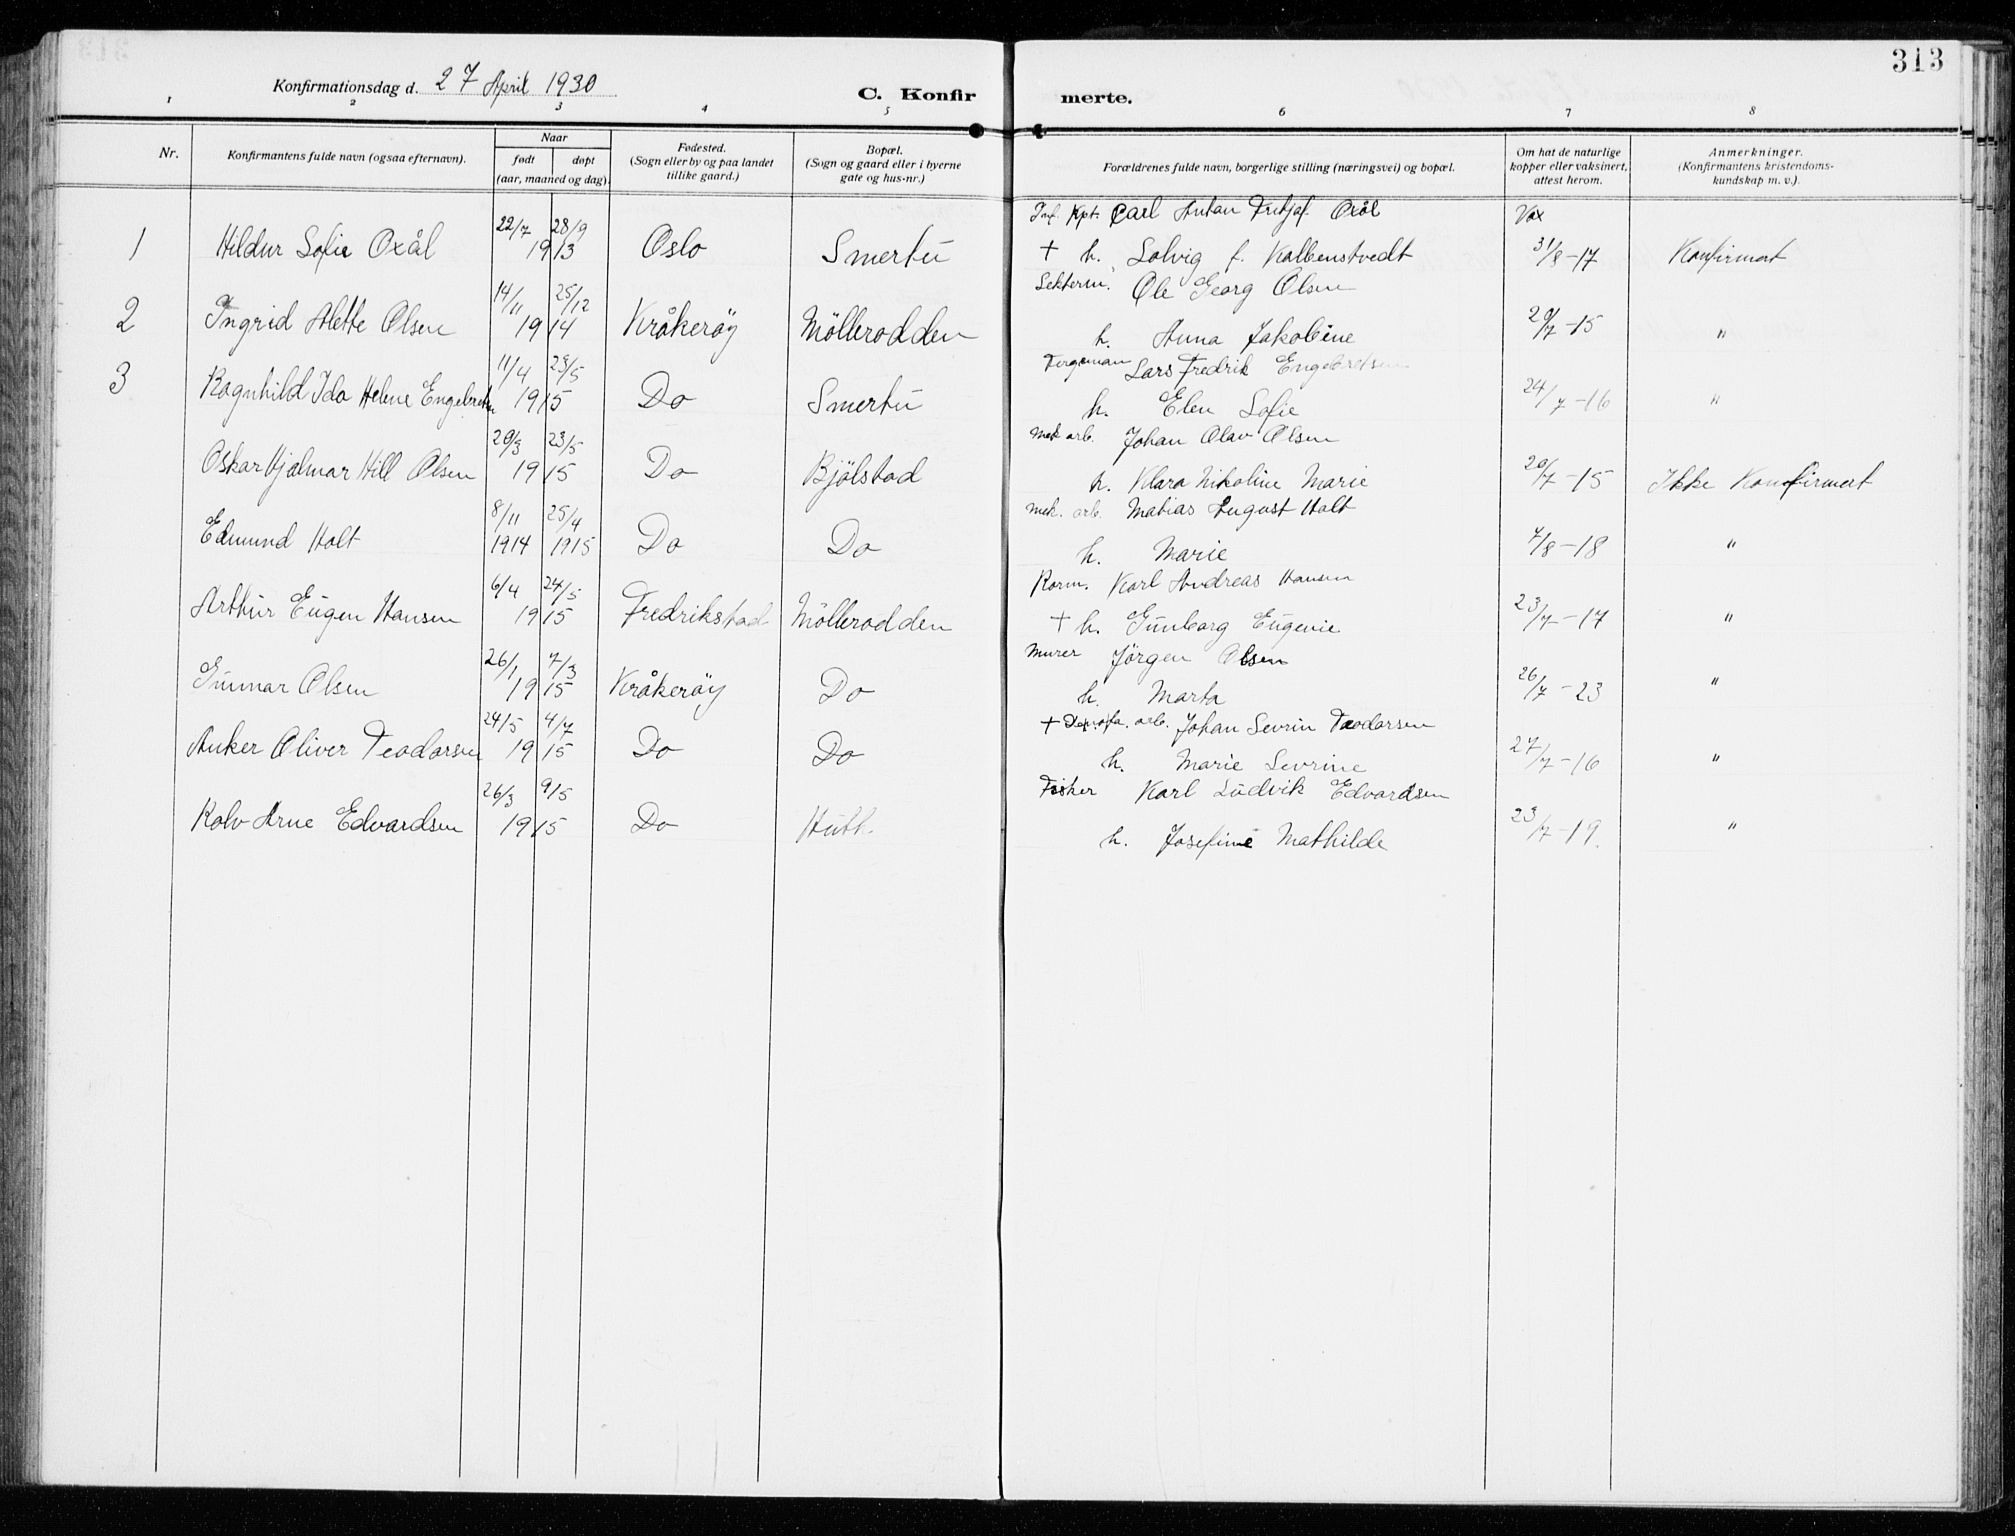 313
Konfirmationsdag d. 27 April 1930
C. Konfir merte.
1 2 3 4 5 6 7 8
Nr.
Konfirmantens fulde navn (ogsaa efternavn).
Naar
født døpt
(aar, maaned og dag).
Fødested.
(Sogn eller by og paa landet
tillike gaard.)
Bopæl.
(Sogn og gaard eller i byerne
gate og hus-nr.)
Forældrenes fulde navn, borgerlige stilling (næringsvei) og bopæl.
Om hat de naturlige
kopper eller vaksinert,
attest herom.
Anmerkninger.
(Konfirmantens kristendoms-
kundskap m. v.).
22/7 28/9 Inf. Kpt. Carl Anton Fritjof Oxål Vax
1 Hildur Sofie Oxål 1913 Oslo Smertu + h. Solvig f. Kolbenstvedt 31/8-17 Konfirmert
14/11 25/12 Ole Georg Olsen
2 Ingrid Alette Olsen 1914 Kråkeröy Möllerodden h. Anna Jakobine 29/7-15 "
11/4 23/5 Fergeman Lars Fredrik Engebretsen
3 Ragnhild Ida Helene Engebretsen 1915 Do Smertu h. Elen Sofie 24/7-16 "
20/3 23/5 Mek arb. Johan Olav Olsen
Oskar Hjalmar Hill Olsen 1915 Do Bjölstad h. Klara Nikoline Marie 20/7-15 Ikke Konfirmert
8/11 25/4 Mek. arb. Matias August Holt
Edmund Holt 1914 1915 Do Do h. Marie 7/8-18 "
6/4 24/5 Korm. Karl Andreas Hansen
Arthur Eugen Hansen 1915 Fredrikstad Möllerodden + h. Gunborg Eugenie 23/7-17 "
26/1 7/3 Murer Jörgen Olsen
Gunnar Olsen 1915 Kråkeröy Do h. Marta 26/7-23 "
24/5 4/7 + arb. Johan Sevrin Teodorsen
Anker Oliver Teodorsen 1915 Do Do h. Marie Sevrine 27/7-16 "
26/3 9/5 Fisker Karl Ludvik Edvardsen
Rolv Arne Edvardsen 1915 Do Huth. h. Josefine Mathilde 23/7-19. "